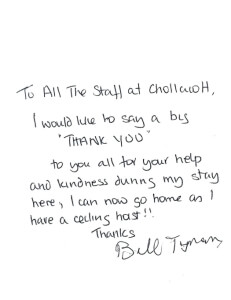 To All The Staff at Chollacott,
I would like to say a big
"THANK YOU"
to you all for your help
and kindness during my stay
here, I can now go home as I
have a ceiling hoist!!
Thanks
Bill